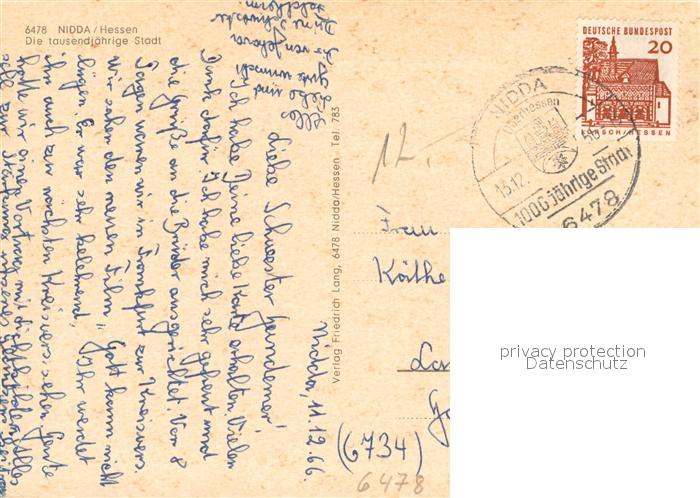 6478 NIDDA/Hessen
Die tausendjährige Stadt
DEUTSCHE BUNDESPOST
20
LORSCH/HESSEN
NIDDA
Oberhessen
13.12.
1000 jährige Stadt
6478
12.
Nidda, 11.12.66.
Liebe Schwester
Ich habe Deine liebe Karte erhalten. Vielen
Dank dafür. Ich habe mich sehr gefreut und
die Grüße an die Brüder ausgerichtet. Vor 8
Tagen waren wir in Frankfurt zur Kreisvers.
Wir sahen den neuen Film: Gott kann nicht
lügen. Er war sehr belehrend. Ihr werdet
ihn auch zur nächsten Kreisvers. sehen. Heute
hatte wir einen Vortrag mit
soll zur Stärkung unseres
Alles
Liebe und
gute wünscht
Verlag Friedrich Lang, 6478 Nidda/Hessen, Tel. 783
Frau
Käthe
(6734)
6478
privacy protection
Datenschutz